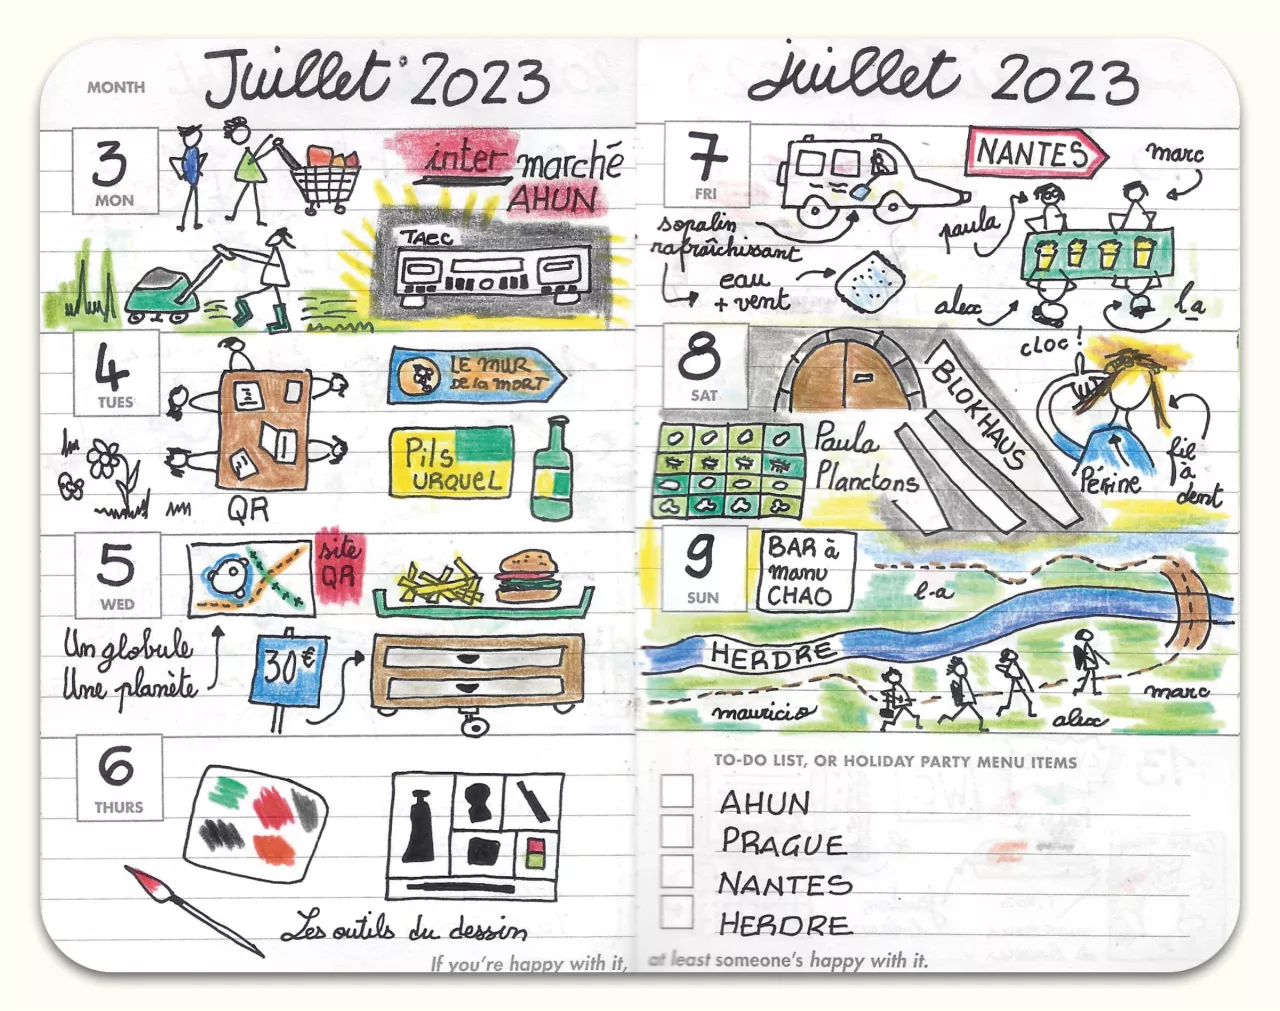 MONTH
Juillet 2023
3
MON
inter marché
AHUN
TAEC
4
TUES
LE MUR
DE la MORT
Pils
URQUEL
QR
5
WED
site
QR
Un globule
Une planète
30€
6
THURS
Les outils du dessin
If you're happy with it,
juillet 2023
7
FRI
NANTES
marc
paula
sopalin
rafraîchissant
eau
+ vent
alex
l.a
8
SAT
cloc!
BLOKHAUS
Paula
Planctons
Périne
fil
à
dent
9
SUN
BAR à
manu
CHAO
l-a
HERDRE
mauricio
alex
marc
TO-DO LIST, OR HOLIDAY PARTY MENU ITEMS
AHUN
PRAGUE
NANTES
HERDRE
at least someone's happy with it.